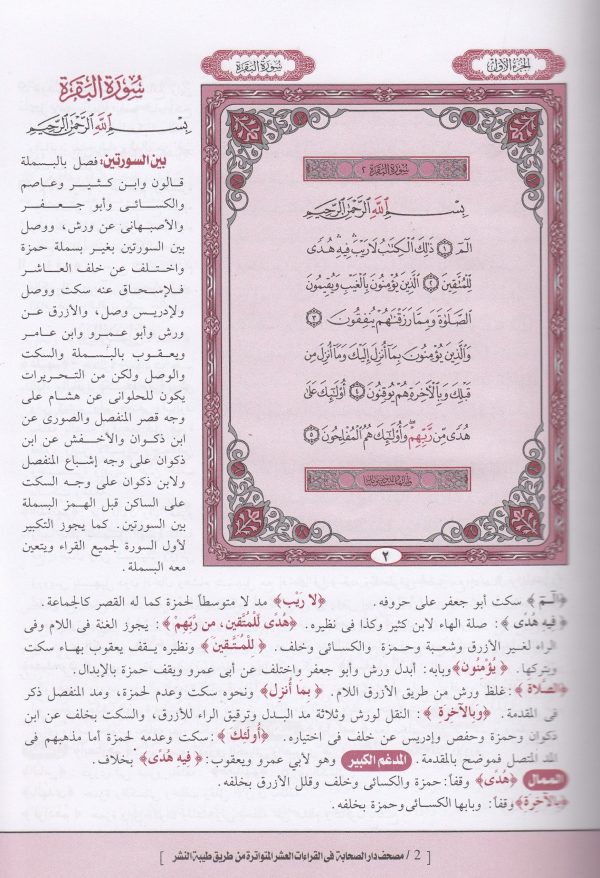 الجزء الأول
سورة البقرة
سورة البقرة ٢
بسم الله الرحمن الرحيم
الٓمٓ ۝١ ذَٰلِكَ ٱلْكِتَٰبُ لَا رَيْبَ ۛ فِيهِ ۛ هُدًى
لِّلْمُتَّقِينَ ۝٢ ٱلَّذِينَ يُؤْمِنُونَ بِٱلْغَيْبِ وَيُقِيمُونَ
ٱلصَّلَوٰةَ وَمِمَّا رَزَقْنَٰهُمْ يُنفِقُونَ ۝٣
وَٱلَّذِينَ يُؤْمِنُونَ بِمَآ أُنزِلَ إِلَيْكَ وَمَآ أُنزِلَ مِن
قَبْلِكَ وَبِٱلْأَخِرَةِ هُمْ يُوقِنُونَ ۝٤ أُو۟لَٰٓئِكَ عَلَىٰ
هُدًى مِّن رَّبِّهِمْ ۖ وَأُو۟لَٰٓئِكَ هُمُ ٱلْمُفْلِحُونَ ۝٥
٢
سورة البقرة
بسم الله الرحمن الرحيم
بين السورتين: فصل بالبسملة
قالون وابن كثير وعاصم
والكسائى وأبو جعفر
والأصبهانى عن ورش، ووصل
بين السورتين بغير بسملة حمزة
واختلف عن خلف العاشر
فلإسحاق عنه سكت ووصل
ولإدريس وصل، والأزرق عن
ورش وأبو عمرو وابن عامر
ويعقوب بالبسملة والسكت
والوصل ولكن من التحريرات
يكون للحلوانى عن هشام على
وجه قصر المنفصل والصورى عن
ابن ذكوان والأخفش عن ابن
ذكوان على وجه إشباع المنفصل
ولابن ذكوان على وجه السكت
على الساكن قبل الهمز البسملة
بين السورتين. كما يجوز التكبير
لأول السورة لجميع القراء ويتعين
معه البسملة.
﴿الٓمٓ﴾ سكت أبو جعفر على حروفه. ﴿لا رَيْب﴾ مد لا متوسطاً لحمزة كما له القصر كالجماعة.
﴿فيه هُدًى﴾: صلة الهاء لابن كثير وكذا فى نظيره. ﴿هُدًى لِّلْمُتَّقين، من رَّبِّهِمْ﴾: يجوز الغنة فى اللام وفى
الراء لغير الأزرق وشعبة وحمزة والكسائى وخلف. ﴿لِّلْمُتَّقِينَ﴾ ونظيره يقف يعقوب بهاء سكت
وبتركها. ﴿يُؤْمنُون﴾ وبابه: أبدل ورش وأبو جعفر واختلف عن أبى عمرو ويقف حمزة بالإبدال.
﴿الصَّلاة﴾: غلظ ورش من طريق الأزرق اللام. ﴿بما أُنزل﴾ ونحوه سكت وعدم لحمزة، ومد المنفصل ذكر
فى المقدمة. ﴿وَبالآخرة﴾: النقل لورش وثلاثة مد البدل وترقيق الراء للأزرق، والسكت بخلف عن ابن
ذكوان وحمزة وحفص وإدريس عن خلف فى اختياره. ﴿أُولَئِك﴾: سكت وعدمه لحمزة أما مذهبهم فى
المد المتصل فموضح بالمقدمة. المدغم الكبير وهو لأبى عمرو ويعقوب: ﴿فيه هُدًى﴾ بخلاف.
الممال ﴿هُدًى﴾ وقفاً: حمزة والكسائى وخلف وقلل الأزرق بخلفه.
﴿بالآخرة﴾ وقفاً: وبابها الكسائى وحمزة بخلفه.
[ 2 / مصحف دار الصحابة فى القراءات العشر المتواترة من طريق طيبة النشر ]